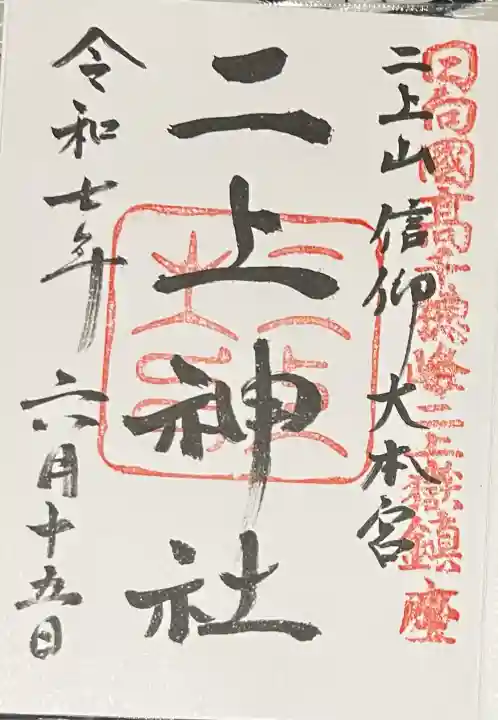 日向國高千穂峰二上嶽鎮座
二上山信仰大本宮
二上神社
令和七年 六月十五日